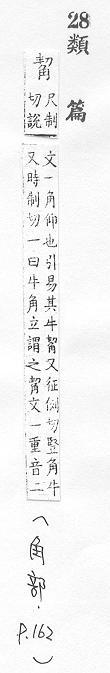 28類
篇
觢
尺制
切説
文一角仰也引易其牛觢又征例切竪角牛
又時制切一曰牛角立謂之觢文一重音二
(角部.
P.162)